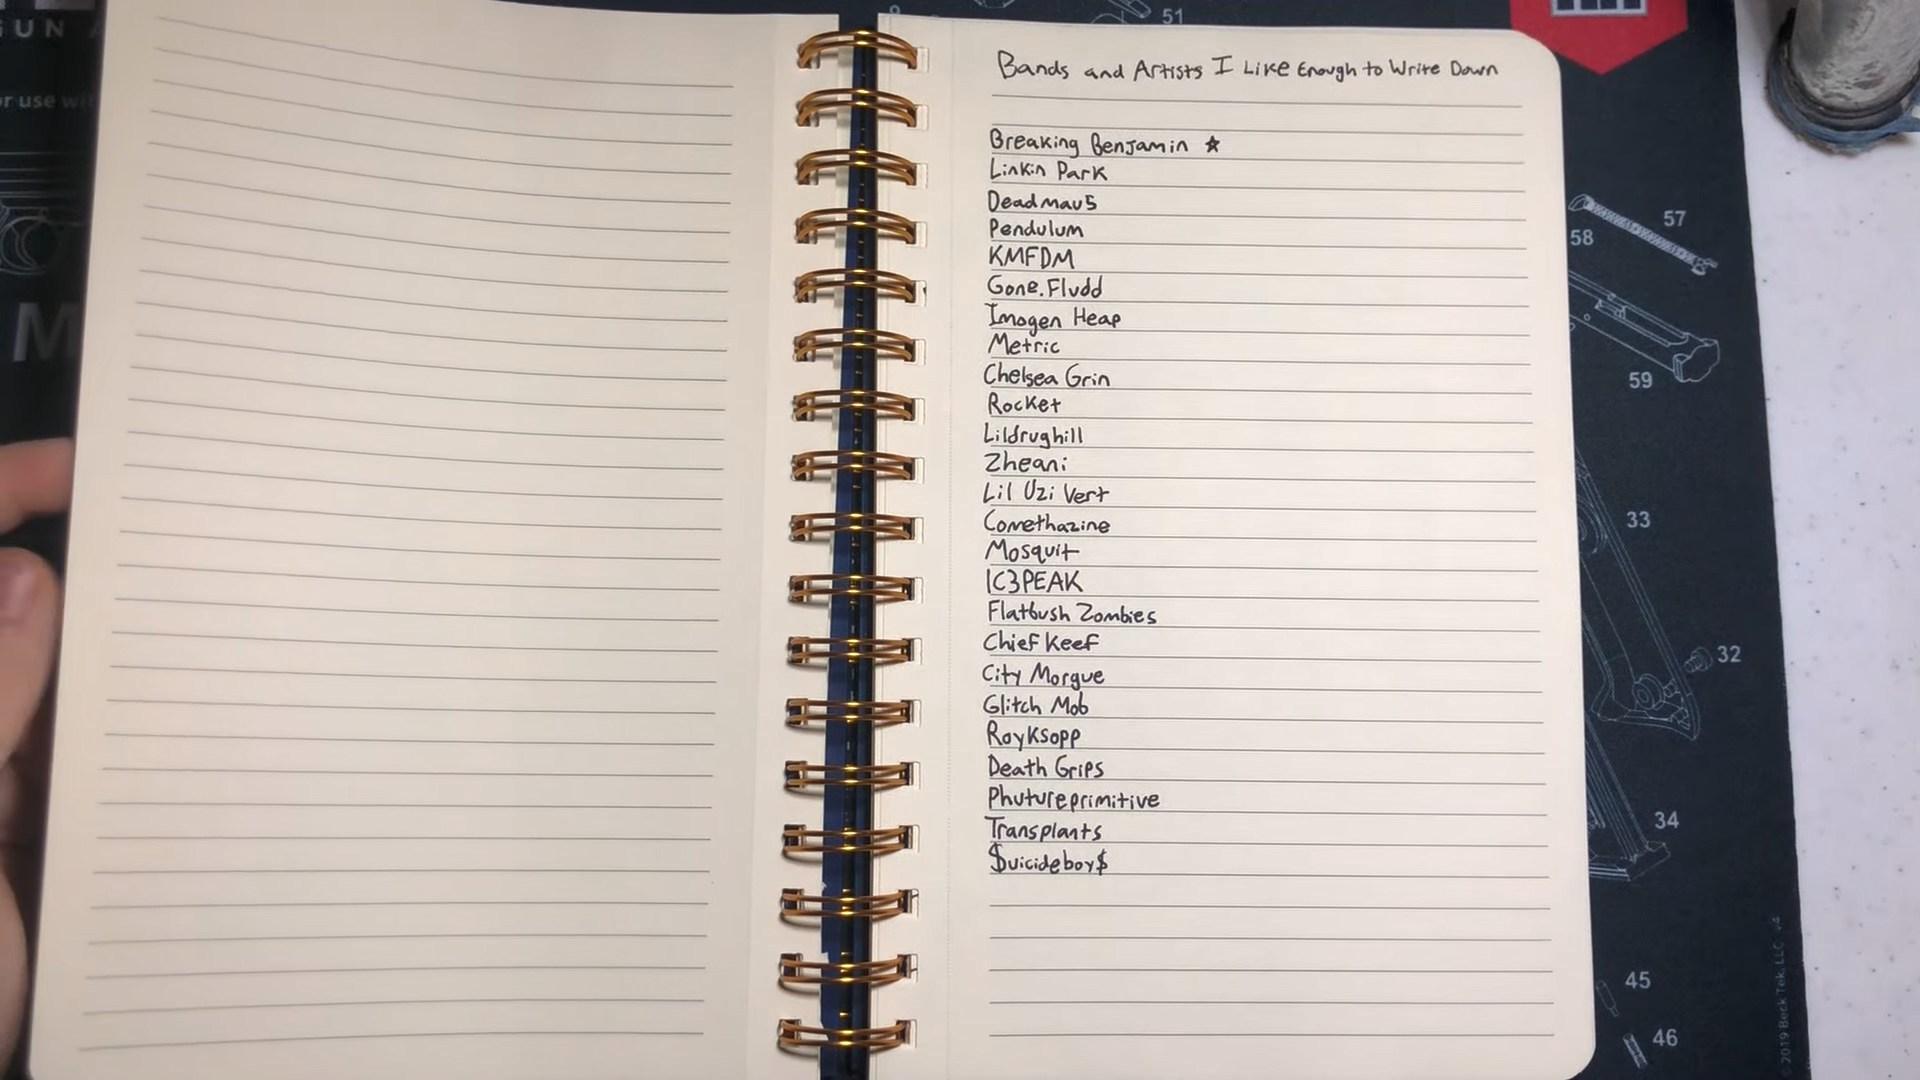 51
9
GUN
or use wi
M
Bands and Artists I Like Enough to Write Down
Breaking Benjamin ☆
Linkin Park
Deadmau5
Pendulum
KMFDM
Gone.Fludd
Imogen Heap
Metric
Chelsea Grin
Rocket
Lildrughill
Zheani
Lil Uzi Vert
Comethazine
Mosquit
IC3PEAK
Flatbush Zombies
Chief Keef
City Morgue
Glitch Mob
Royksopp
Death Grips
Phutureprimitive
Transplants
$uicideboy$
57
58
59
33
32
34
45
46
©2019 Beck Tek, LLC v4